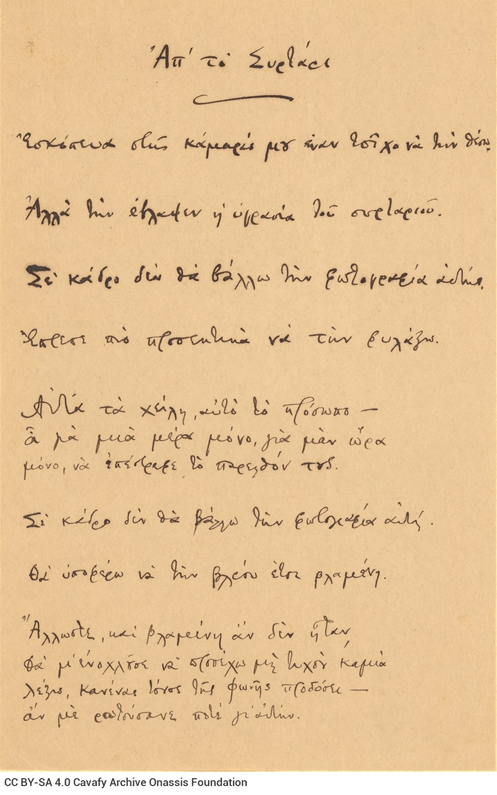 Ἀπ' τὸ Συρτάρι
Ἐσκόπευα στῆς κάμαρής μου ἕναν τοῖχο νὰ τὴν θέσω.
Ἀλλὰ τὴν ἔβλαψεν ἡ ὑγρασία τοῦ συρταριοῦ.
Σὲ κάδρο δὲν θὰ βάλλω τὴν φωτογραφία αὐτή.
Ἔπρεπε πιὸ προσεκτικὰ νὰ τὴν φυλάξω.
Αὐτὰ τὰ χείλη, αὐτὸ τὸ πρόσωπο —
ἂ γιὰ μιὰ μέρα μόνο, γιὰ μιὰν ὥρα
μόνο, νὰ ἐπέστρεφε τὸ παρελθόν των.
Σὲ κάδρο δὲν θὰ βάλλω τὴν φωτογραφία αὐτή.
Θὰ ὑποφέρω νὰ τὴν βλέπω ἔτσι βλαμένη.
Ἄλλωστε, καὶ βλαμένη ἂν δὲν ἦταν,
θὰ μ' ἐνοχλοῦσε νὰ προσέχω μὴ τυχὸν καμιὰ
λέξις, κανένας τόνος τῆς φωνῆς προδόσει —
ἂν μὲ ρωτούσανε ποτὲ γι' αὐτήν.
CC BY-SA 4.0 Cavafy Archive Onassis Foundation